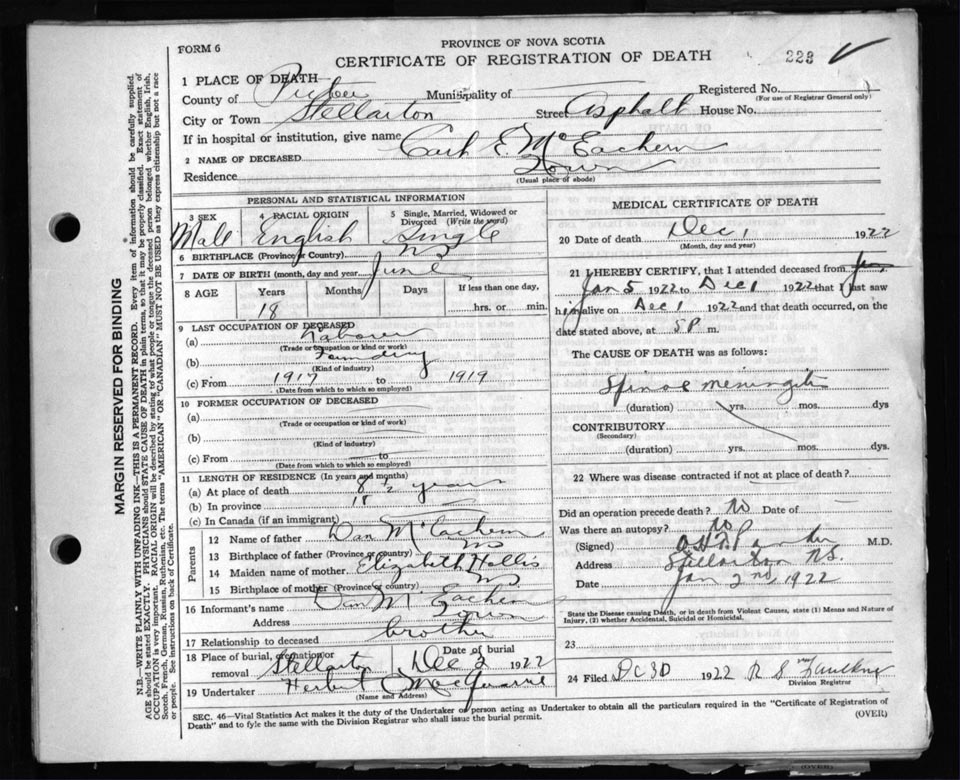 FORM 6
PROVINCE OF NOVA SCOTIA
CERTIFICATE OF REGISTRATION OF DEATH
223
1 PLACE OF DEATH
County of Pictou Municipality of
Registered No.
(For use of Registrar General only)
City or Town Stellarton Street Asphalt House No.
If in hospital or institution, give name
2 NAME OF DECEASED Carl E. McEachern
Residence Town
(Usual place of abode)
PERSONAL AND STATISTICAL INFORMATION
3 SEX 4 RACIAL ORIGIN 5 Single, Married, Widowed or Divorced (Write the word)
Male English Single
6 BIRTHPLACE (Province or Country) NS
7 DATE OF BIRTH (month, day and year) June
8 AGE Years Months Days If less than one day,
18 hrs. or min.
9 LAST OCCUPATION OF DECEASED
(a) Laborer
(Trade or occupation or kind or work)
(b)
(Kind of industry)
(c) From 1917 to 1919
(Date from which to which so employed)
10 FORMER OCCUPATION OF DECEASED
(a)
(Trade or occupation or kind of work)
(b)
(Kind of industry)
(c) From to
(Date from which to which so employed)
11 LENGTH OF RESIDENCE (In years and months)
(a) At place of death 8 1/2 years
(b) In province 18
(c) In Canada (if an immigrant)
Parents
12 Name of father Dan McEachern
13 Birthplace of father (Province or country) NS
14 Maiden name of mother Elizabeth Hollis
15 Birthplace of mother (Province or country) NS
16 Informant's name Dan McEachern
Address Town
17 Relationship to deceased brother
18 Place of burial, cremation or removal Stellarton
Date of burial Dec 2 1922
19 Undertaker Herbert MacQuarrie
(Name and Address)
MEDICAL CERTIFICATE OF DEATH
20 Date of death Dec 1 1922
(Month, day and year)
21 I HEREBY CERTIFY, that I attended deceased from
Jan 5 1922 to Dec 1 1922 that I last saw
him alive on Dec 1 1922 and that death occurred, on the
date stated above, at 5 P m.
The CAUSE OF DEATH was as follows:
Spinal meningitis
(duration) yrs. mos. dys
CONTRIBUTORY
(Secondary)
(duration) yrs. mos. dys.
22 Where was disease contracted if not at place of death?
Did an operation precede death? No Date of
Was there an autopsy? no
(Signed) M.D.
Address Stellarton N.S.
Date Jan 2nd 1922
State the Disease causing Death, or in death from Violent Causes, state (1) Means and Nature of
Injury, (2) whether Accidental, Suicidal or Homicidal.
23
24 Filed 1922 R S Faulkner
Division Registrar
SEC. 46—Vital Statistics Act makes it the duty of the Undertaker or person acting as Undertaker to obtain all the particulars required in the "Certificate of Registration of
Death" and to fyle the same with the Division Registrar who shall issue the burial permit.
(OVER)
MARGIN RESERVED FOR BINDING
N.B.—WRITE PLAINLY WITH UNFADING INK—THIS IS A PERMANENT RECORD. Every item of information should be carefully supplied.
AGE should be stated EXACTLY. PHYSICIANS should STATE CAUSE OF DEATH in plain terms, so that it may be properly classified. Exact statement of
OCCUPATION is very important. RACIAL ORIGIN will be described by stating to what people or tongue the deceased person belonged whether English, Irish,
Scotch, French, German, Russian, Ruthenian, etc. The terms "AMERICAN" OR "CANADIAN" MUST NOT BE USED as they express citizenship but not a race
or people. See instructions on back of Certificate.
(OVER)